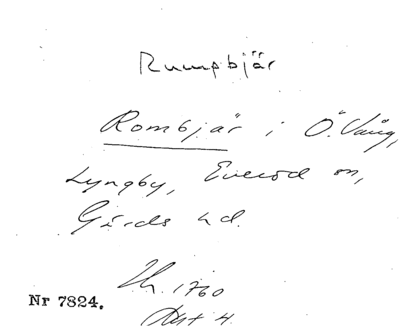 Rumpbjär
Rombjär i Ö. Vång,
Lyngby, Everöd sn,
Gärds hd.
1760
Nr 7824.
Akt 4